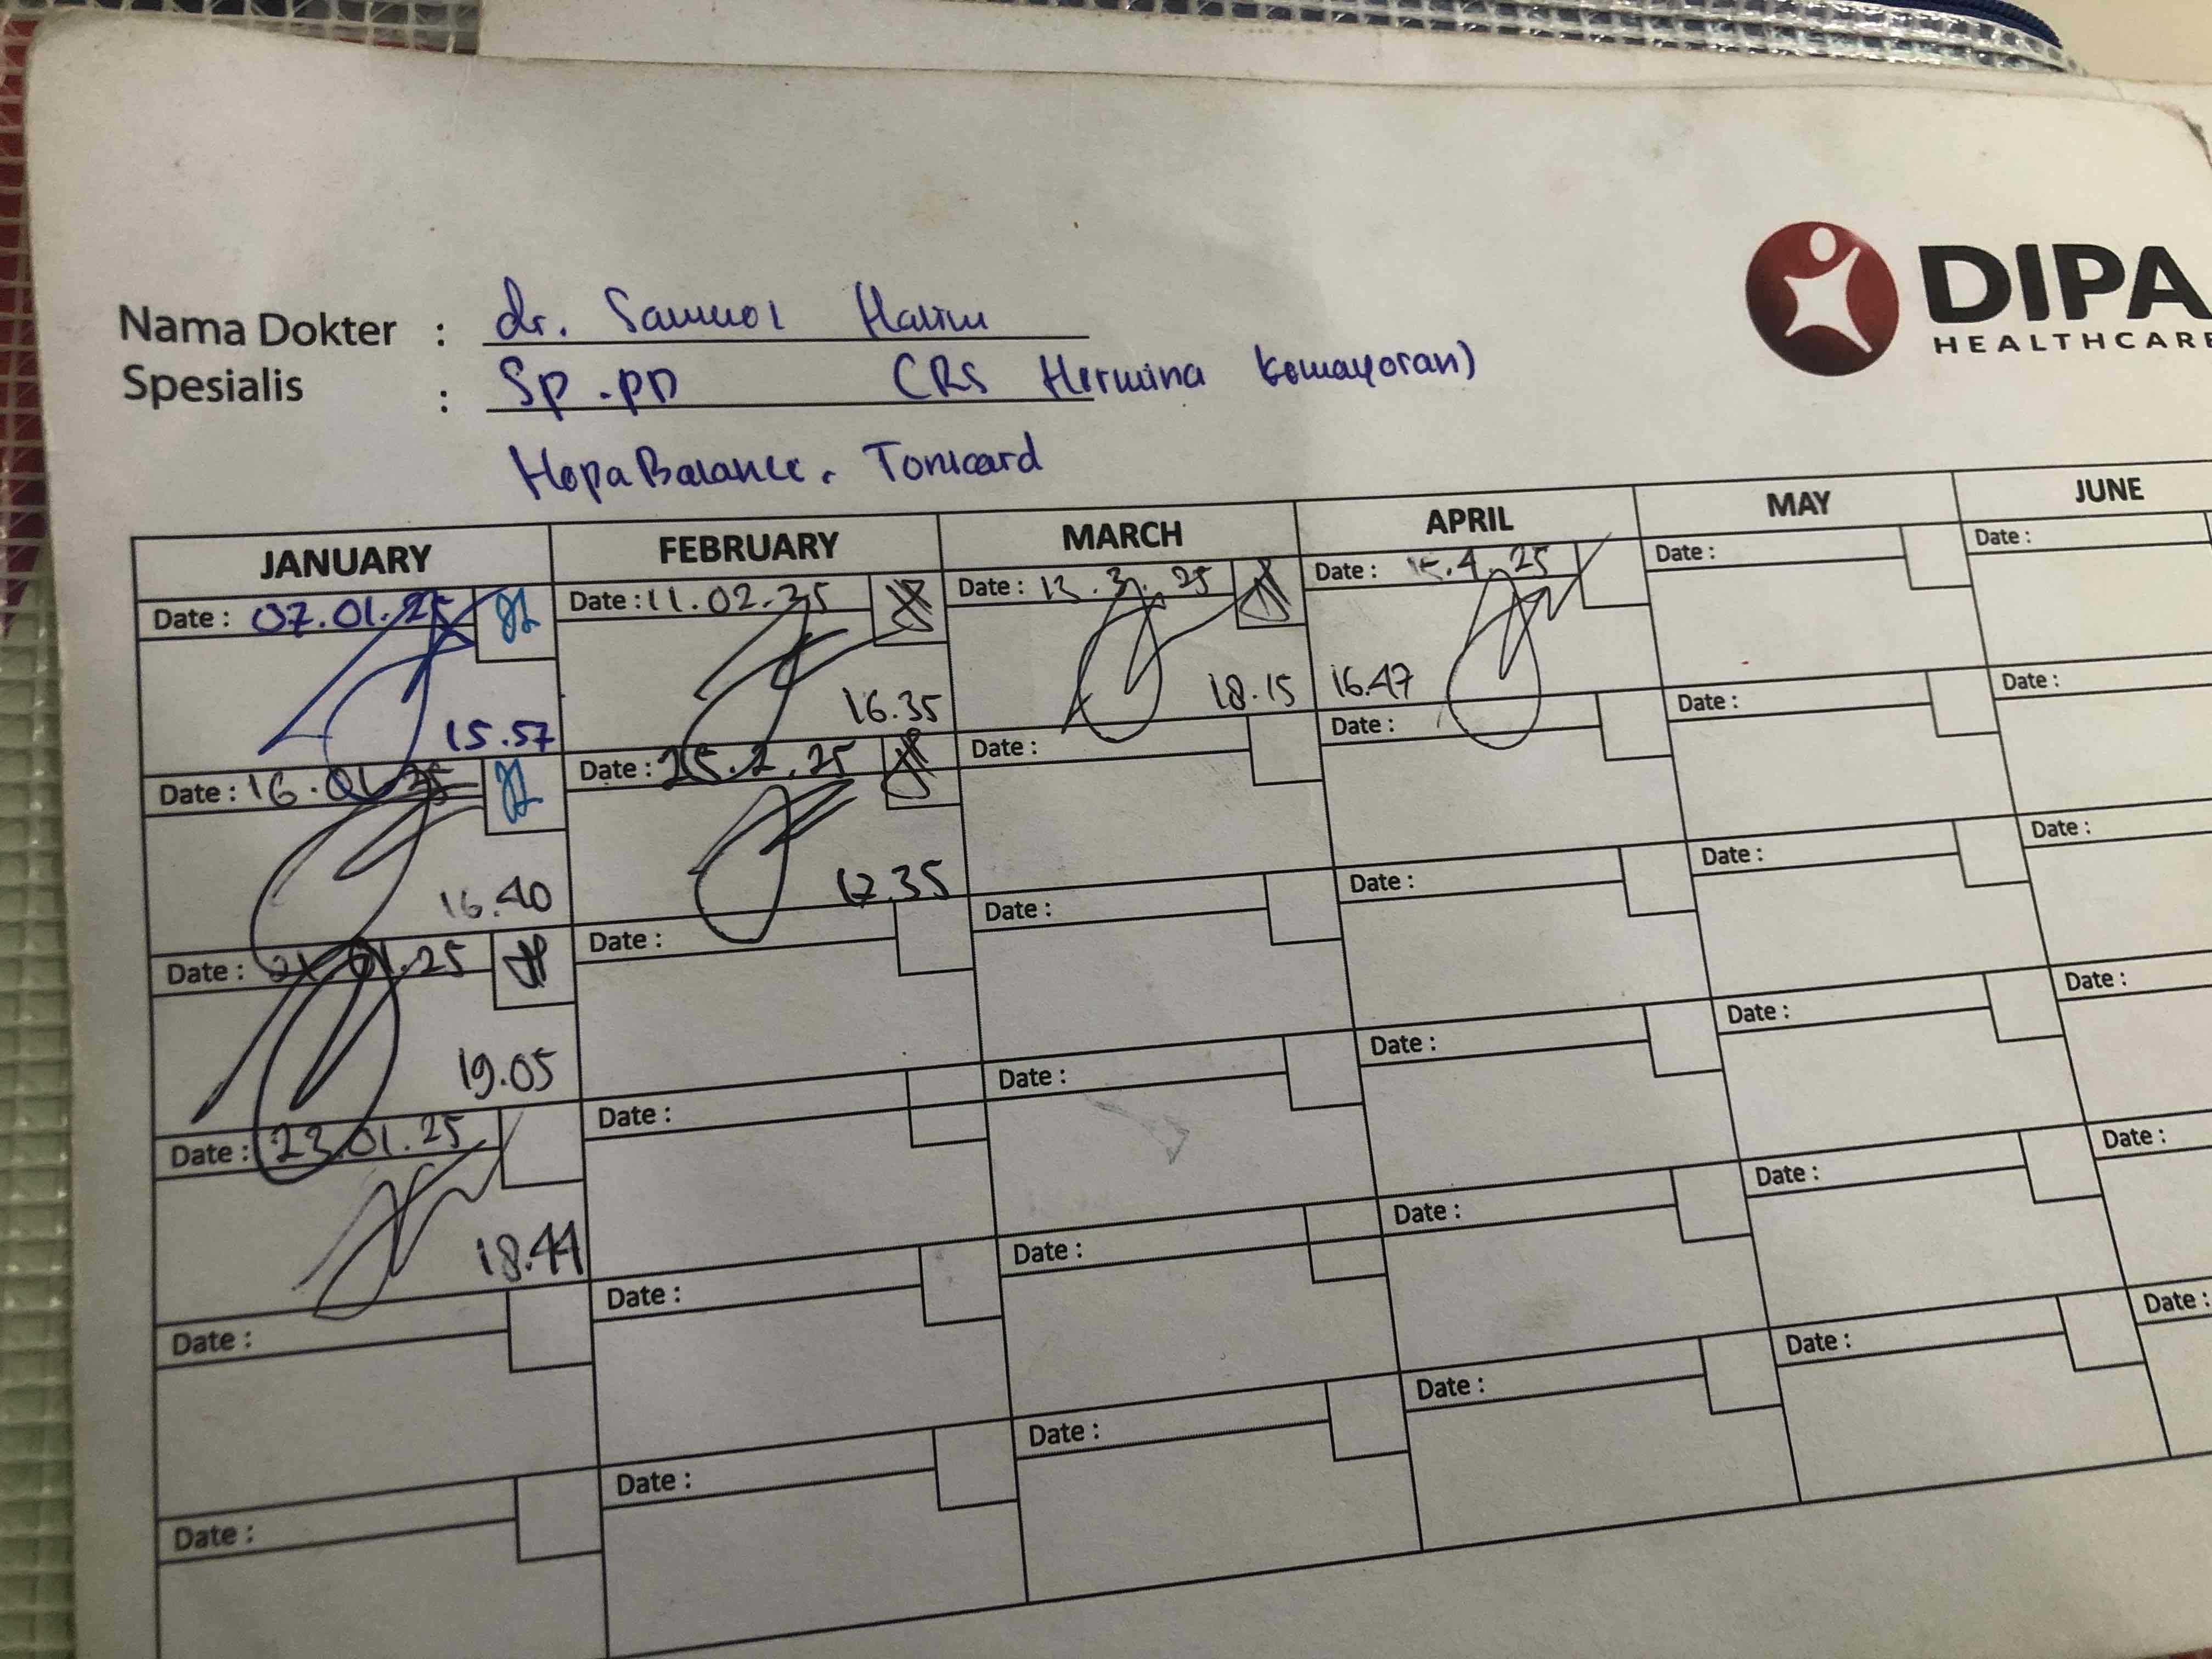 DIPA
HEALTHCARE
Nama Dokter : dr. Samuel Halim
Spesialis : Sp.PD (RS Hermina Kemayoran)
HepaBalance. Tonicard
JANUARY FEBRUARY MARCH APRIL MAY JUNE
Date : 07.01.25 Date : 11.02.25 Date : 13.3.25 Date : 15.4.25 Date : Date :
15.57 16.35 18.15 16.47
Date : 16.01.25 Date : 25.2.25 Date : Date : Date : Date :
16.40 17.35
Date : 21.01.25 Date : Date : Date : Date : Date :
19.05
Date : 23.01.25 Date : Date : Date : Date : Date :
18.44
Date : Date : Date : Date : Date : Date :
Date : Date : Date : Date : Date : Date :